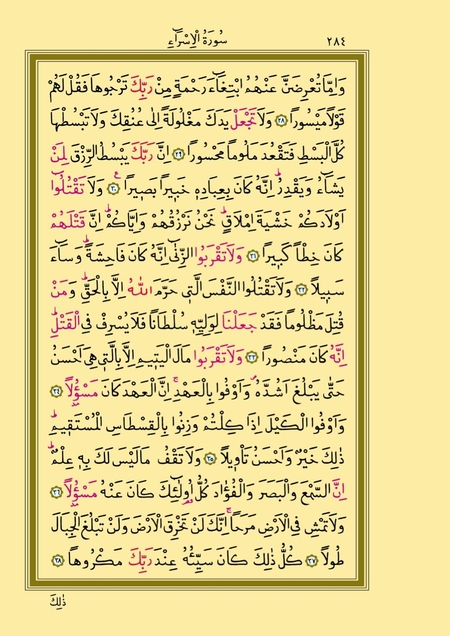 ٢٨٤
سُورَةُ الْاِسْرَٓاءِ
وَاِمَّا تُعْرِضَنَّ عَنْهُمُ ابْتِغَٓاءَ رَحْمَةٍ مِنْ رَبِّكَ تَرْجُوهَا فَقُلْ لَهُمْ
قَوْلًا مَيْسُورًا ﴿٢٨﴾ وَلَا تَجْعَلْ يَدَكَ مَغْلُولَةً اِلٰى عُنُقِكَ وَلَا تَبْسُطْهَا
كُلَّ الْبَسْطِ فَتَقْعُدَ مَلُومًا مَحْسُورًا ﴿٢٩﴾ اِنَّ رَبَّكَ يَبْسُطُ الرِّزْقَ لِمَنْ
يَشَٓاءُ وَيَقْدِرُۜ اِنَّهُ كَانَ بِعِبَادِهِ خَبِيرًا بَصِيرًا۟ ﴿٣٠﴾ وَلَا تَقْتُلُٓوا
اَوْلَادَكُمْ خَشْيَةَ اِمْلَاقٍۜ نَحْنُ نَرْزُقُهُمْ وَاِيَّاكُمْۜ اِنَّ قَتْلَهُمْ
كَانَ خِطْـًٔا كَبِيرًا ﴿٣١﴾ وَلَا تَقْرَبُوا الزِّنٰٓى اِنَّهُ كَانَ فَاحِشَةًۜ وَسَٓاءَ
سَبِيلًا ﴿٣٢﴾ وَلَا تَقْتُلُوا النَّفْسَ الَّتِي حَرَّمَ اللّٰهُ اِلَّا بِالْحَقِّۜ وَمَنْ
قُتِلَ مَظْلُومًا فَقَدْ جَعَلْنَا لِوَلِيِّهِ سُلْطَانًا فَلَا يُسْرِفْ فِي الْقَتْلِۜ
اِنَّهُ كَانَ مَنْصُورًا ﴿٣٣﴾ وَلَا تَقْرَبُوا مَالَ الْيَتِيمِ اِلَّا بِالَّتِي هِيَ اَحْسَنُ
حَتّٰى يَبْلُغَ اَشُدَّهُۖ وَاَوْفُوا بِالْعَهْدِۚ اِنَّ الْعَهْدَ كَانَ مَسْؤُ۫لًا ﴿٣٤﴾
وَاَوْفُوا الْكَيْلَ اِذَا كِلْتُمْ وَزِنُوا بِالْقِسْطَاسِ الْمُسْتَقِيمِۜ
ذٰلِكَ خَيْرٌ وَاَحْسَنُ تَأْوِيلًا ﴿٣٥﴾ وَلَا تَقْفُ مَا لَيْسَ لَكَ بِهِ عِلْمٌۜ
اِنَّ السَّمْعَ وَالْبَصَرَ وَالْفُؤٰادَ كُلُّ اُو۬لٰٓئِكَ كَانَ عَنْهُ مَسْؤُ۫لًا ﴿٣٦﴾
وَلَا تَمْشِ فِي الْاَرْضِ مَرَحًاۚ اِنَّكَ لَنْ تَخْرِقَ الْاَرْضَ وَلَنْ تَبْلُغَ الْجِبَالَ
طُولًا ﴿٣٧﴾ كُلُّ ذٰلِكَ كَانَ سَيِّئُهُ عِنْدَ رَبِّكَ مَكْرُوهًا ﴿٣٨﴾
ذٰلِكَ